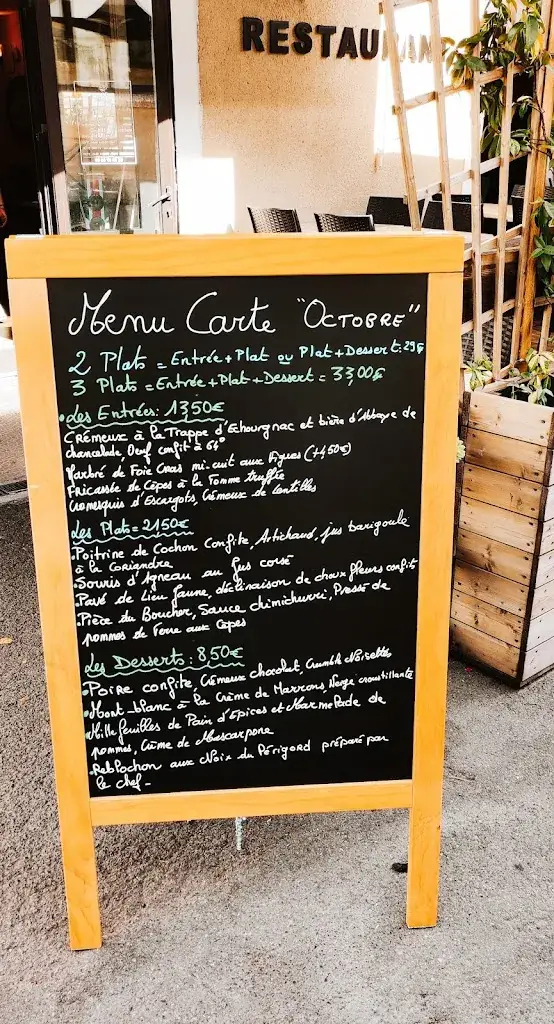 RESTAURANT
Menu Carte "OCTOBRE"
2 Plats = Entrée+Plat ou Plat+Dessert: 29€
3 Plats = Entrée+Plat+Dessert = 33,00€
Les Entrées: 13,50€
Crémeux à la Trappe d'Echourgnac et bière d'Abbaye de
chancelade, Oeuf confit à 64°
Marbré de Foie Gras mi-cuit aux Figues (+4,50€)
Fricassée de Cèpes à la Tomme truffée
Cromesquis d'Escargots, Crémeux de lentilles
Les Plats = 21,50€
• Poitrine de Cochon Confite, Artichaud, jus barigoule
à la Coriandre
• Souris d'Agneau au jus corsé
• Pavé de Lieu Jaune, déclinaison de choux fleurs confit
• Pièce du Boucher, Sauce chimichurri, Pressé de
pommes de Terre aux Cèpes
Les Desserts: 8,50€
• Poire confite, Crémeux chocolat, Crumble Noisettes
• Mont-blanc à la Crème de Marrons, Neige croustillante
• Mille feuilles de Pain d'Épices et Marmelade de
pommes, Crème de Mascarpone
• Reblochon aux Noix du Périgord préparé par
le chef -